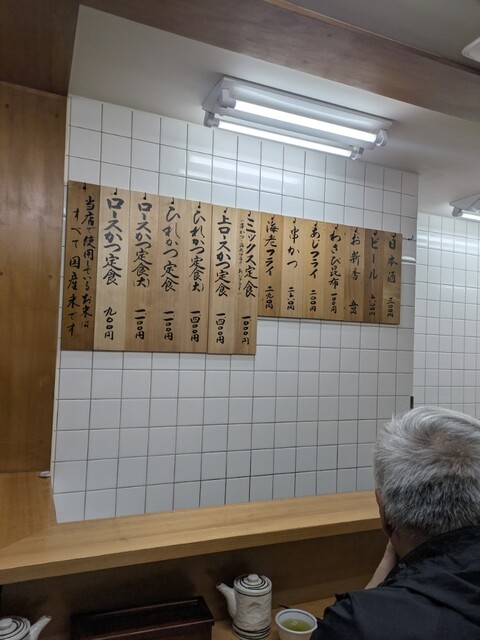 日本酒 三〇〇円
ビール
お新香
わさび昆布 一〇〇円
あじフライ
串かつ
海老フライ
ミックス定食 一〇〇〇円
上ロースかつ定食 一四〇〇円
ひれかつ定食(大) 一四〇〇円
ひれかつ定食
ロースかつ定食(大)
ロースかつ定食 九〇〇円
当店で使用しているお米は
すべて国産米です